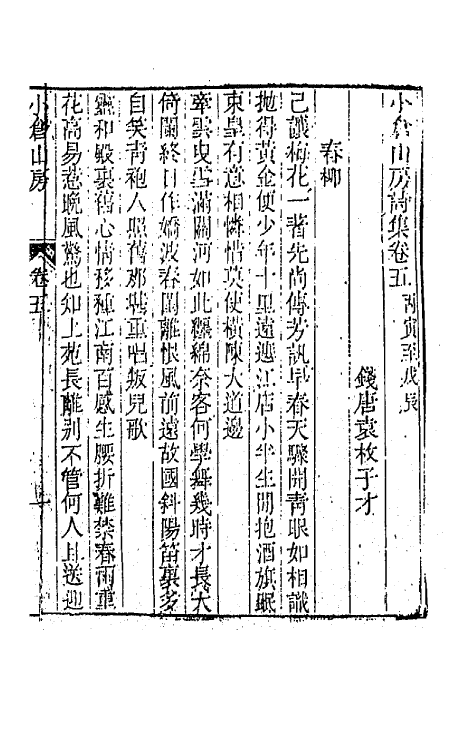 小倉山房詩集卷五 丙寅至戊辰
錢唐袁枚子才
春柳
已讓梅花一著先尚傳芳訊早春天驟開青眼如相識
拋得黃金便少年十里遠遮江店小半生閒抱酒旗眠
東皇有意相憐惜莫使橫陳大道邊
牽雲曳雪滿關河如此纏綿奈客何學舞幾時才長大
倚闌終日作嬌波春閨離恨風前遠故國斜陽笛裏多
自笑青袍人照舊那堪重唱叛兒歌
靈和殿裏舊心情移種江南百感生腰折難禁春雨重
花高易惹晚風驚也知上苑長離別不管何人且送迎
小倉山房
卷五
一